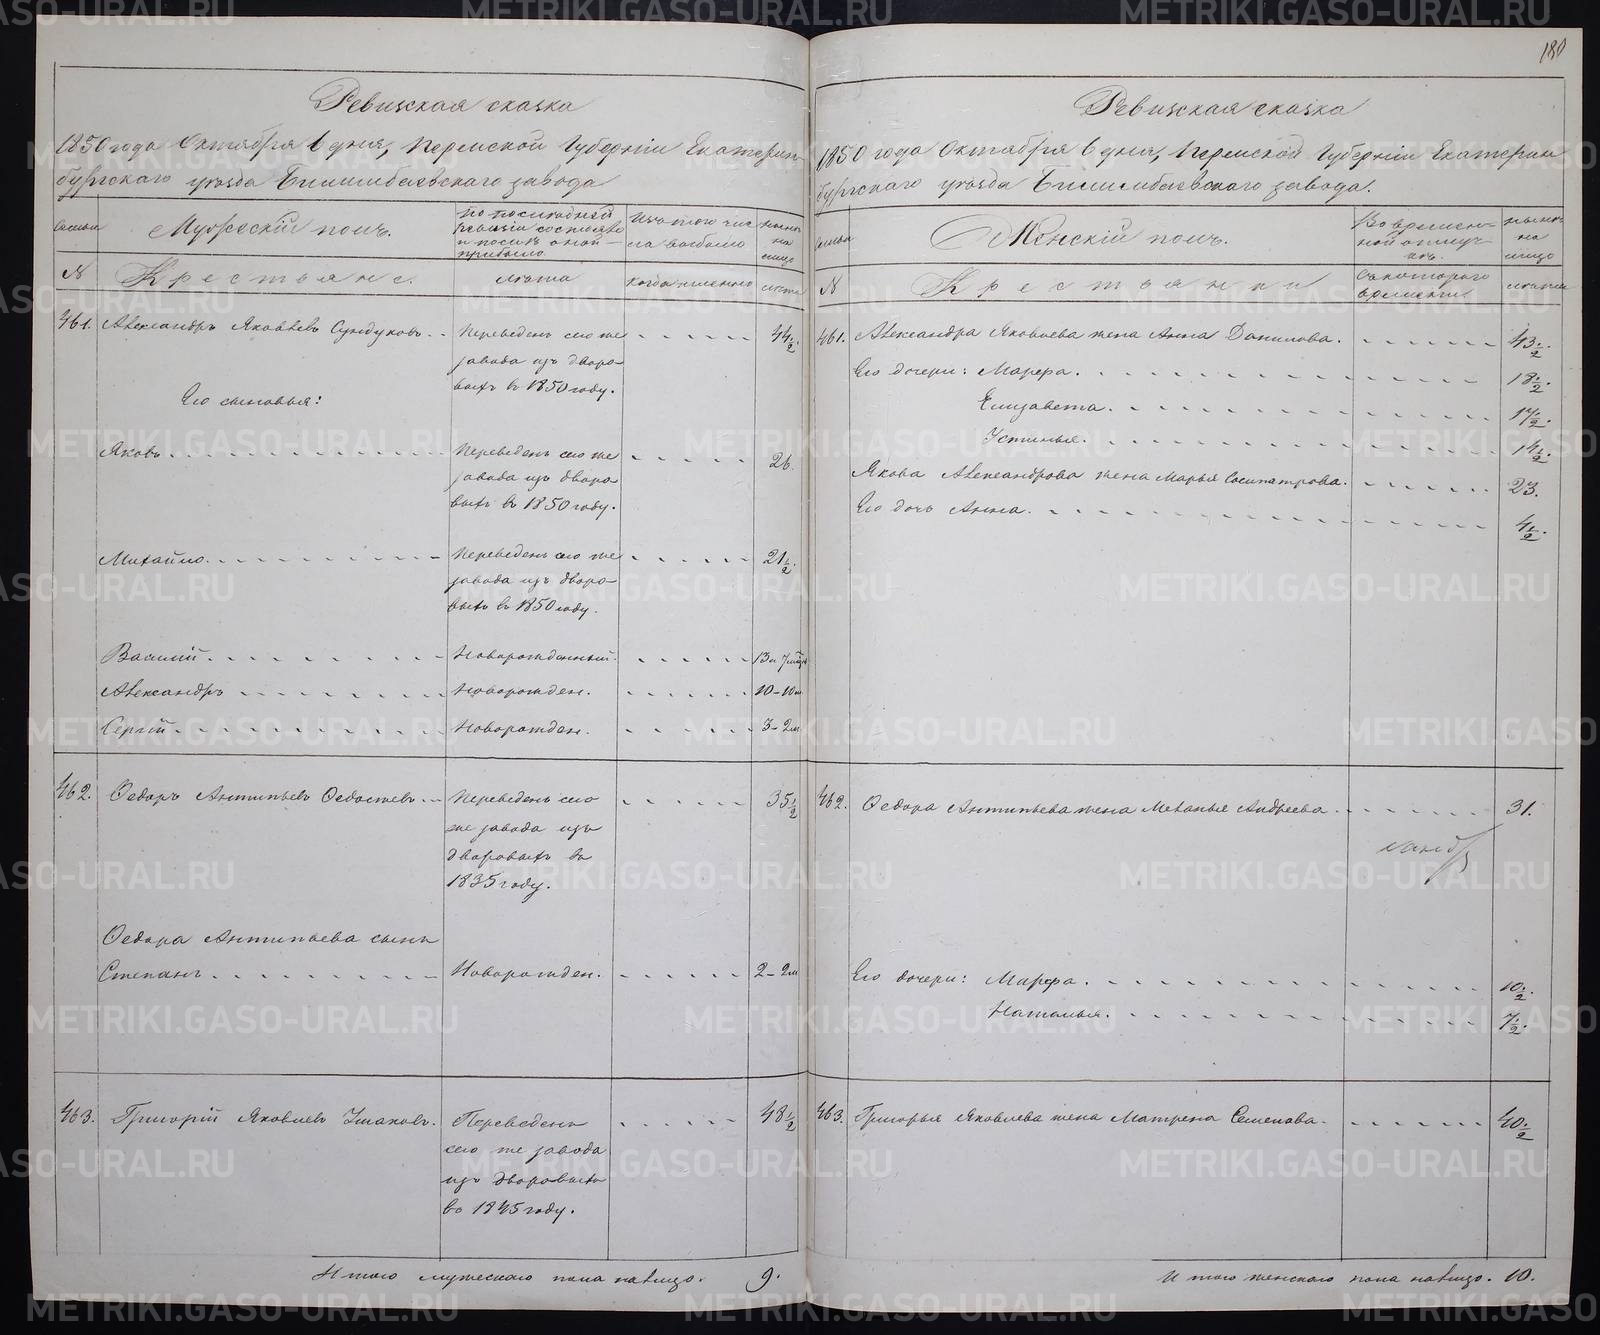 180
Ревизская сказка
1850 года Октября 6 дня, Пермской Губернiи Екатерин-
бургскаго уѣзда Билимбаевскаго завода
семьи
Мужескiй полъ.
по последней ревизiи состояло и после оной прибыло
Изъ того числа выбыло
нынѣ на лицо
№
Крестьяне.
лѣта
когда именно
лѣта
461. Александръ Яковлевъ Сундуковъ
Переведенъ сего же
завода изъ дворо-
выхъ въ 1850 году.
44 1/2.
Его сыновья:
Яковъ
Переведенъ сего же
завода изъ дворо-
выхъ въ 1850 году.
26.
Михайло.
Переведенъ сего же
завода изъ дворо-
выхъ въ 1850 году.
21 1/2.
Василiй. Новорожденный. 13 и 7 мѣс
Александръ Новорожден. 10-10 м
Сергiй. Новорожден. 3-2 м
462. Ѳедоръ Антипьевъ
Переведенъ сего
же завода изъ
дворовыхъ въ
1835 году.
35 1/2
Ѳедора Антипьева сынъ
Степанъ Новорожден. 2-2 м
463. Григорiй Яковлевъ Ушаковъ.
Переведенъ
сего же завода
изъ дворовыхъ
въ 1845 году.
48 1/2
Итого мужескаго пола налицо. 9.
Ревизская сказка
1850 года Октября 6 дня, Пермской Губернiи Екатерин
бургскаго уѣзда Билимбаевскаго завода.
семьи
Женскiй полъ.
Во временной отлучкѣ.
нынѣ на лицо
№
Крестьянки
Съ котораго времени
лѣта
461. Александра Яковлева жена Анна Данилова. 43 1/2.
Его дочери: Марфа. 18 1/2.
Елизавета. 17 1/2.
Устинья. 14 1/2.
Якова Александрова жена Марья Сосипатрова. 23.
Его дочь Анна. 4 1/2.
462. Ѳедора Антипьева жена Меланья Андреева 31.
Его дочери: Марфа. 10 1/2.
Наталья. 7 1/2.
463. Григорья Яковлева жена Матрена Семенова. 40 1/2
Итого женскаго пола налицо. 10.
METRIKI.GASO-URAL.RU